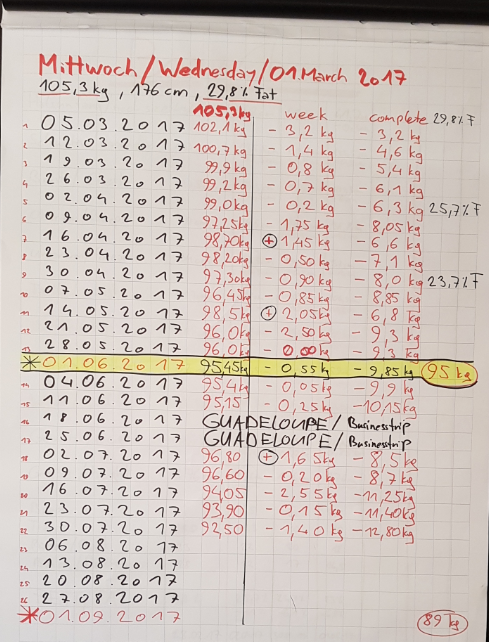 Mittwoch/Wednesday/01.March 2017
105,3kg, 176cm, 29,8% Fat
105,3kg week complete 29,8% F
1 05.03.2017 102,1kg - 3,2 kg - 3,2 kg
2 12.03.2017 100,7kg - 1,4 kg - 4,6 kg
3 19.03.2017 99,9kg - 0,8 kg - 5,4 kg
4 26.03.2017 99,2kg - 0,7 kg - 6,1 kg
5 02.04.2017 99,0kg - 0,2 kg - 6,3 kg 25,7% F
6 09.04.2017 97,25kg - 1,75 kg - 8,05 kg
7 16.04.2017 98,70kg + 1,45 kg - 6,6 kg
8 23.04.2017 98,20kg - 0,50 kg - 7,1 kg
9 30.04.2017 97,30kg - 0,90 kg - 8,0 kg 23,7% F
10 07.05.2017 96,45kg - 0,85 kg - 8,85 kg
11 14.05.2017 98,5kg + 2,05 kg - 6,8 kg
12 21.05.2017 96,0kg - 2,50 kg - 9,3 kg
13 28.05.2017 96,0kg 0,00kg - 9,3 kg
* 01.06.2017 95,45kg - 0,55k - 9,85kg 95 kg
14 04.06.2017 95,4kg - 0,05kg - 9,9 kg
15 11.06.2017 95,15 - 0,25kg - 10,15kg
16 18.06.2017 GUADELOUPE/Businesstrip
17 25.06.2017 GUADELOUPE/Businesstrip
18 02.07.2017 96,80 + 1,65kg - 8,5kg
19 09.07.2017 96,60 - 0,20kg - 8,7kg
20 16.07.2017 94,05 - 2,55kg - 11,25kg
21 23.07.2017 93,90 - 0,15kg - 11,40kg
22 30.07.2017 92,50 - 1,40kg - 12,80kg
23 06.08.2017
24 13.08.2017
25 20.08.2017
26 27.08.2017
* 01.09.2017 89 kg